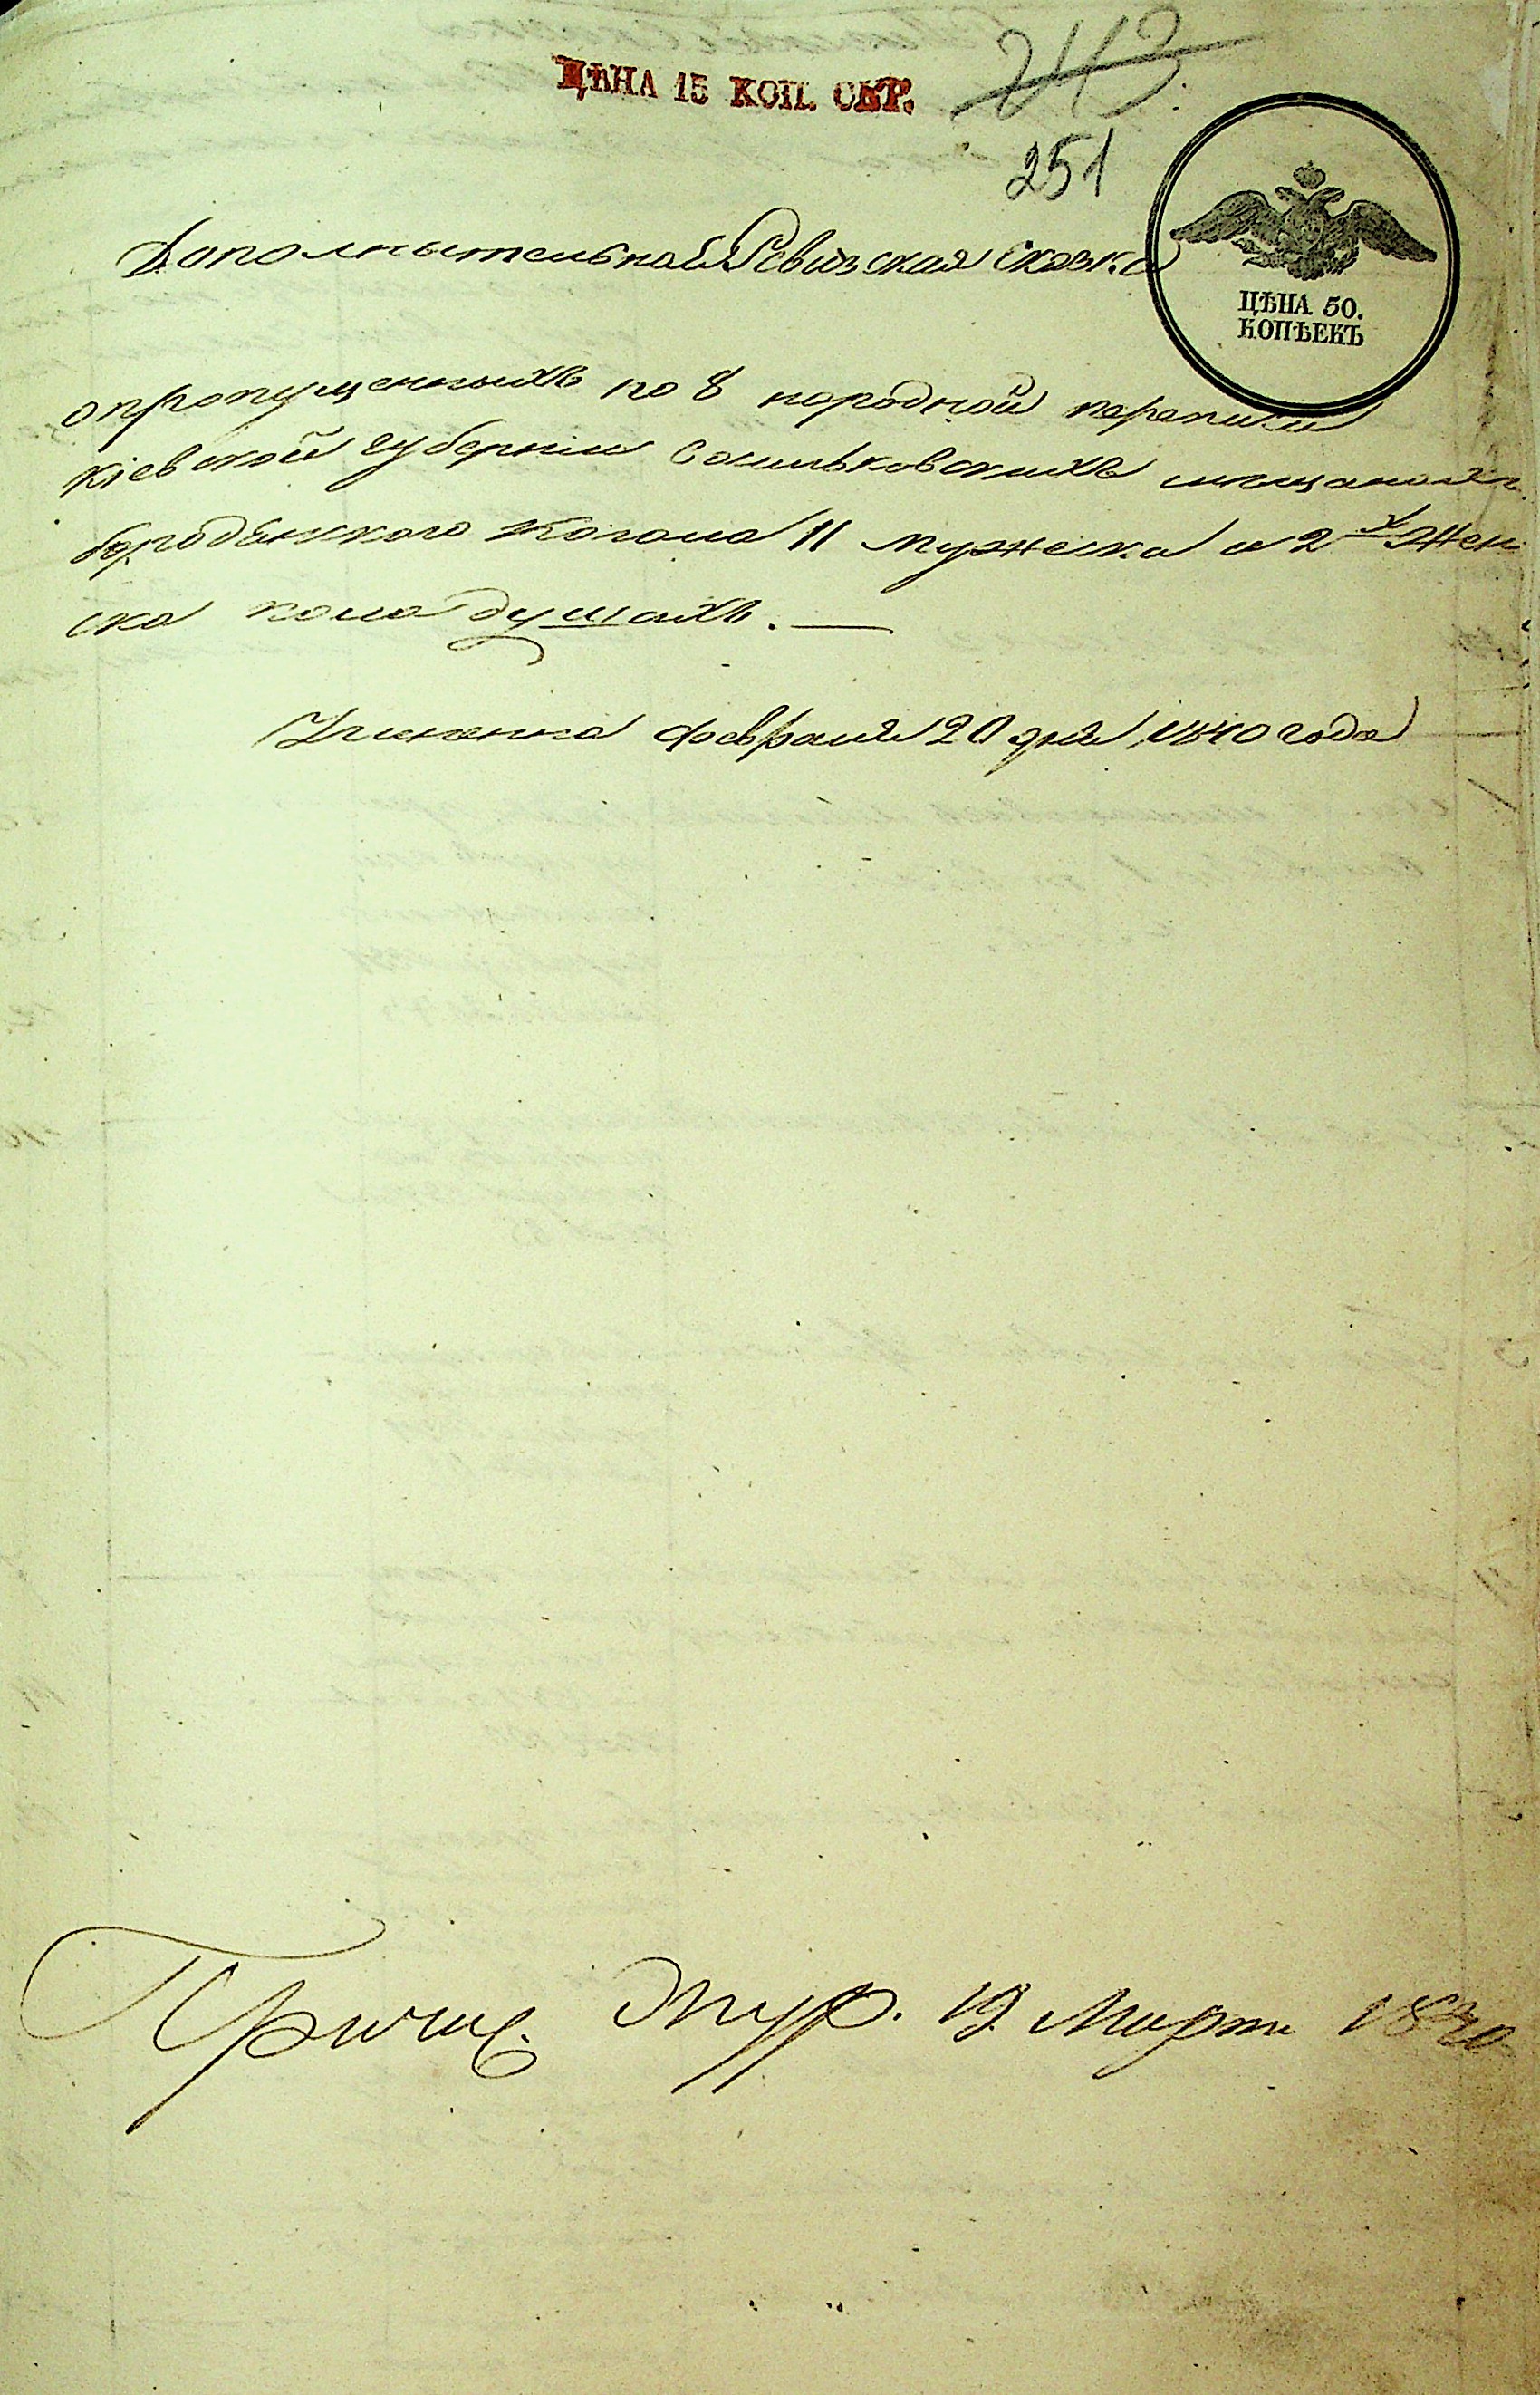 ЦѢНА 15 КОП. СЕР.
243
251
ЦѢНА 50.
КОПѢЕКЪ
Дополнытельной Ревизская сказка
опропущенныхъ по 8 народной переписи
Кіевской губерніи Васильковскихъ мещанахъ
бородянского Кагала 11 мужеска и 2х Жен
ска пола душахъ. —
Учиненна февраля 20 дня 1840 года
19 Марта 1840